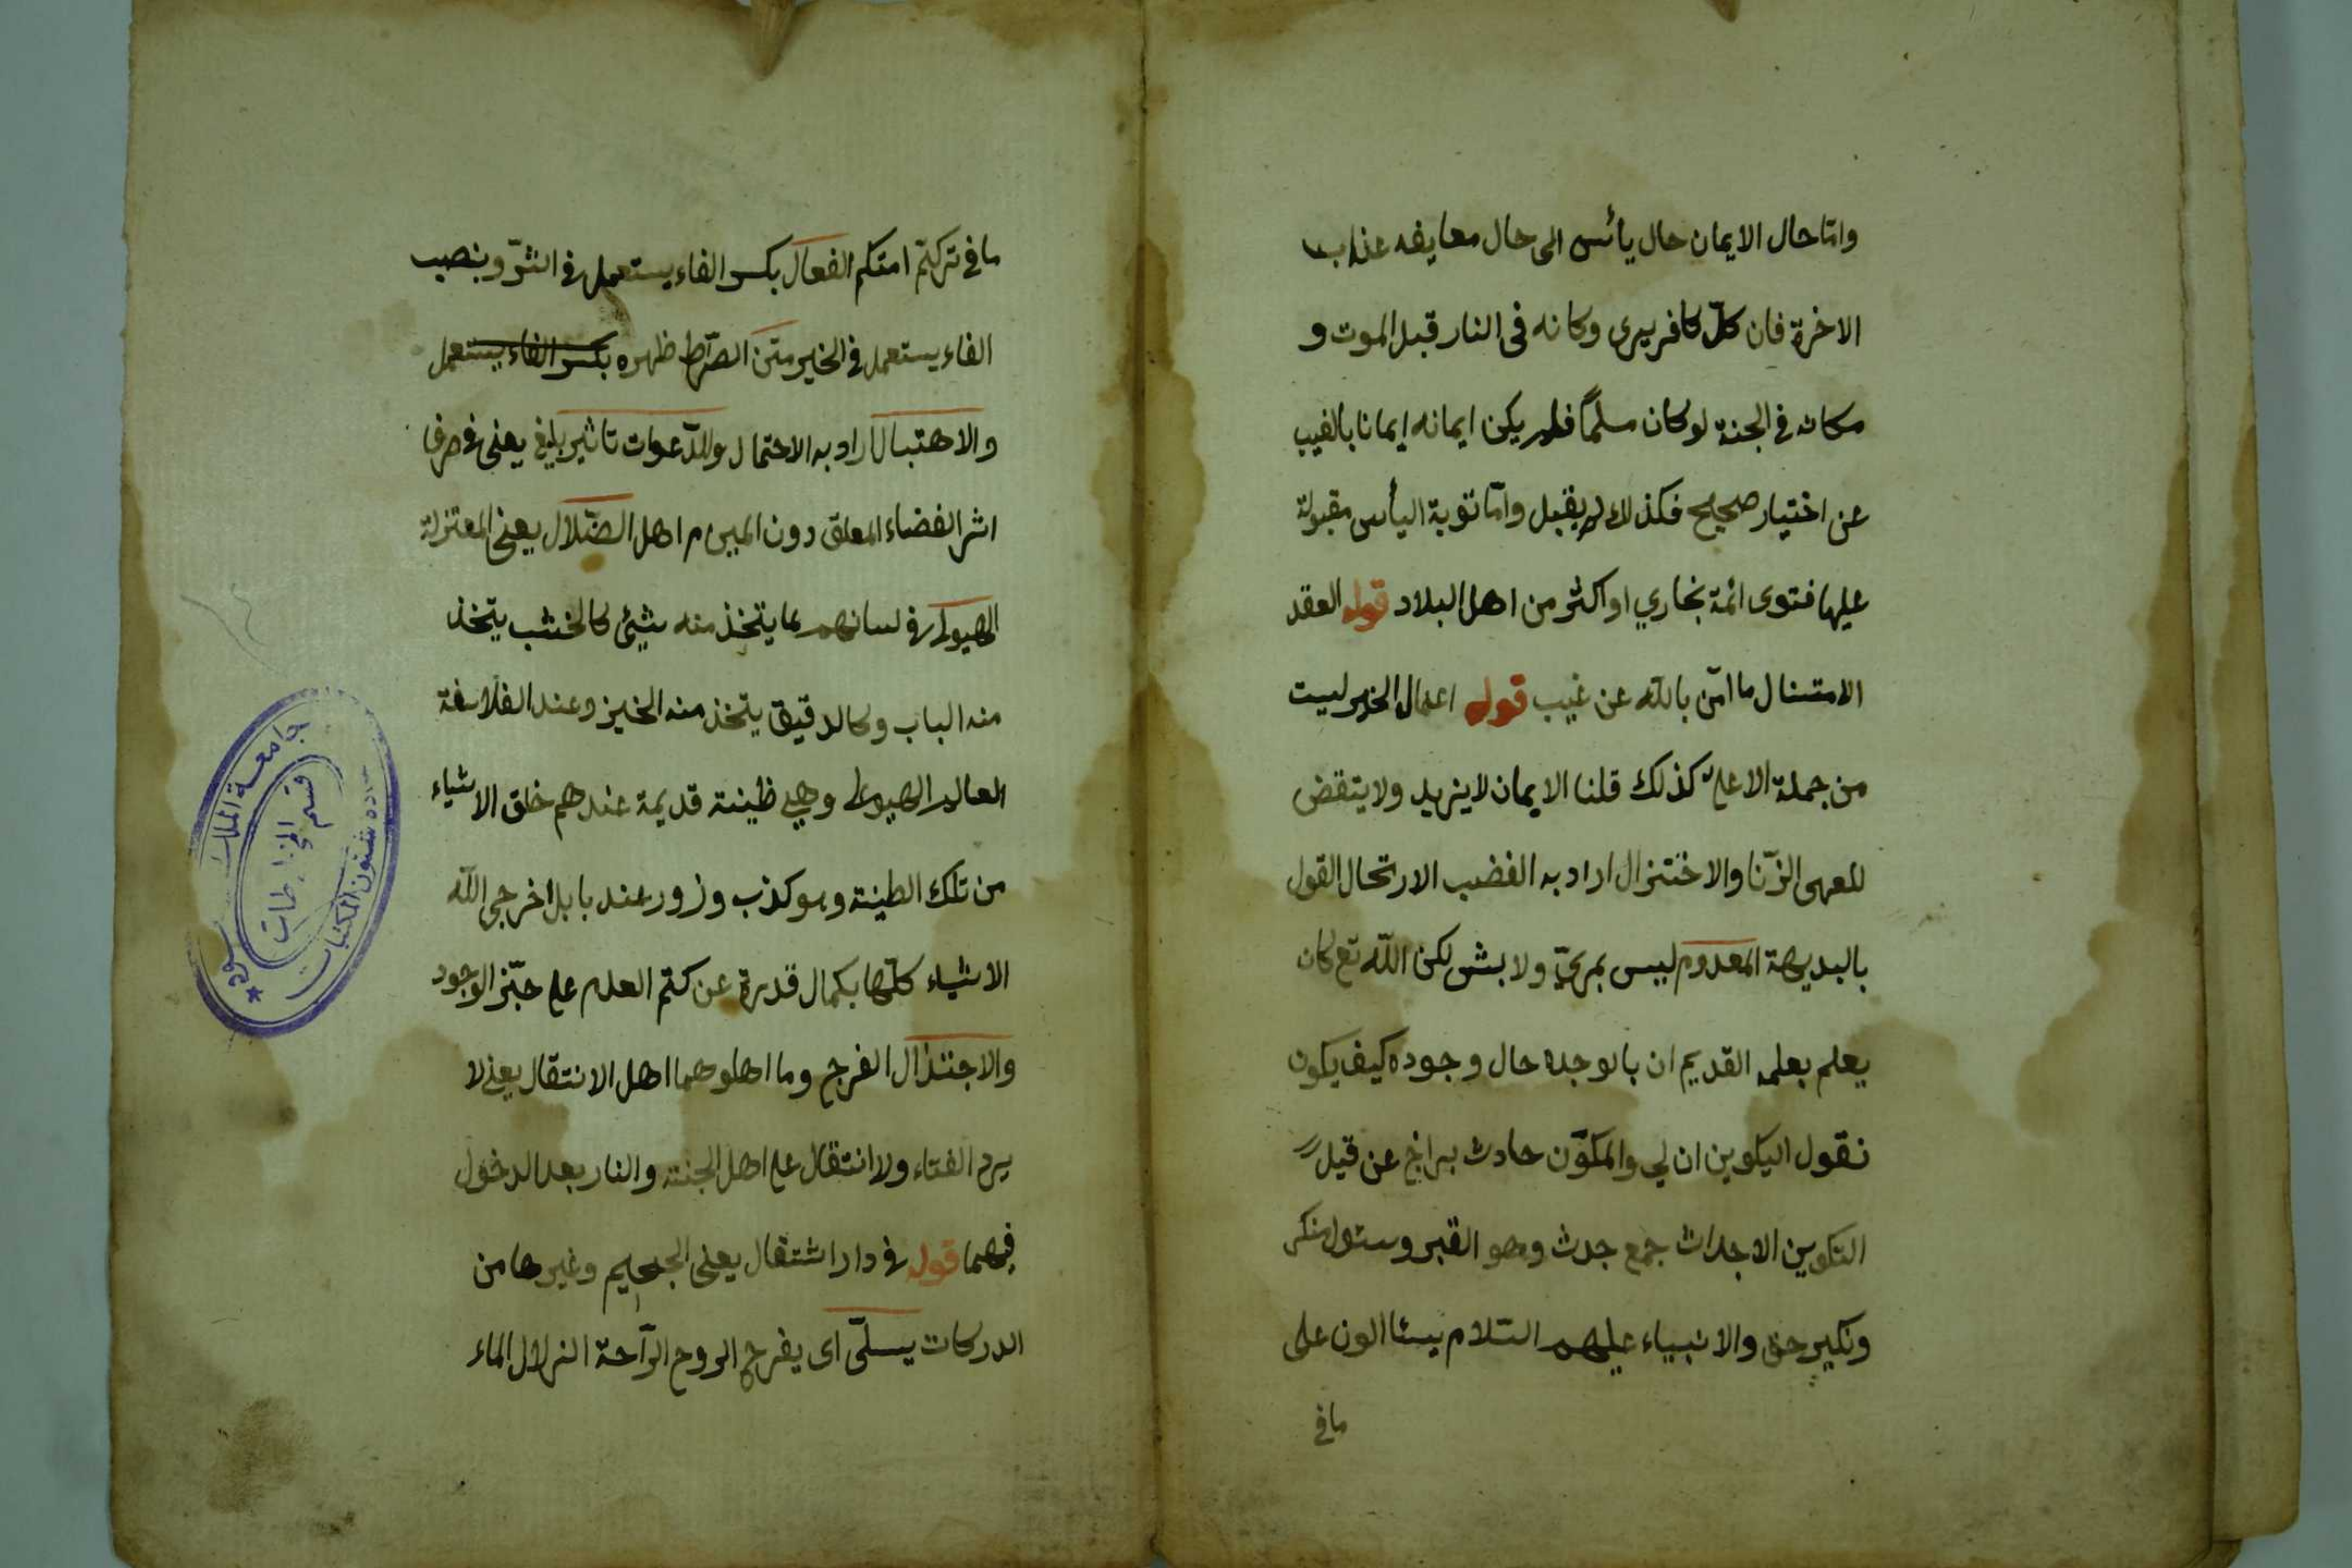 وامّا حال الايمان حال يأئس الى حال معايفه عذاب
الاخرة فان كلّ كافر يرى وكانه فى النار قبل الموت و
مكانه في الجنة لو كان مسلمًا فلم يكن ايمانه إيمانا بالغيب
عن اختيار صحيح فكذلك لم يقبل وامّا توبة اليأس مقبولة
عليها فتوى ائمة بخاري او اكثر من اهل البلاد قوله العقد
الامتنال ما امّن باللّه عن غيب قوله اعمال الخير ليست
من جملة الا على كذلك قلنا الايمان لا يزيد ولا ينقض
للعهى الزّنا والاختزال اراد به الغضب الارتحال القول
بالبديهة المعدوم ليس بمرئيّ ولا بشى لكن اللّه تع كان
يعلم بعلمه القديم ان بالوجده حال وجوده كيف يكون
نقول اليكوين ان لي والمكوّن حادث براخ عن قيل
التكوين الاجداث جمع جدث وهو القبر وسئول منكر
ونكير حق والانبياء عليهم السّلام يسئالون على
ما في
ما في تركتم امتكم الفعال بكسر الفاء يستعمل في الشّر وبنصب
الفاء يستعمل في الخير متن الصّراط ظهره بكسر الفاء يستعمل
والاهتبال اراد به الاحتمال وللدّعوات تاثير بليغ يعنى في صرف
اثر الفضاء المعلق دون المبرم اهل الضّلال يعنى المعتزلة
الهيولى في لسانهم عما يتخذ منه شيئ كالخشب يتّخذ
منه الباب وكالدقيق يتخذ منه الخبز وعند الفلاسفة
العالم الهيولى وهي طينة قديمة عندهم خلق الاشياء
من تلك الطينة وهو كذب وزور عند بابل اخرجى اللّه
الاشياء كلّها بكمال قدرة عن كتم العدم على حيّز الوجود
والاجتذال الفرج وما اهلوهما اهل الانتقال يعنى لا
يرد الفتاء ولا انتقال على اهل الجنتة والنار بعد الدخول
فيهما قوله في دار اشتغال يعنى الجحيم وغيرها من
الدركات يسلّى اى يفرح الروح الرّاحة الزلال الماء
جامعة الملك سعود
عمادة شئون المكتبات
قسم المخطوطات